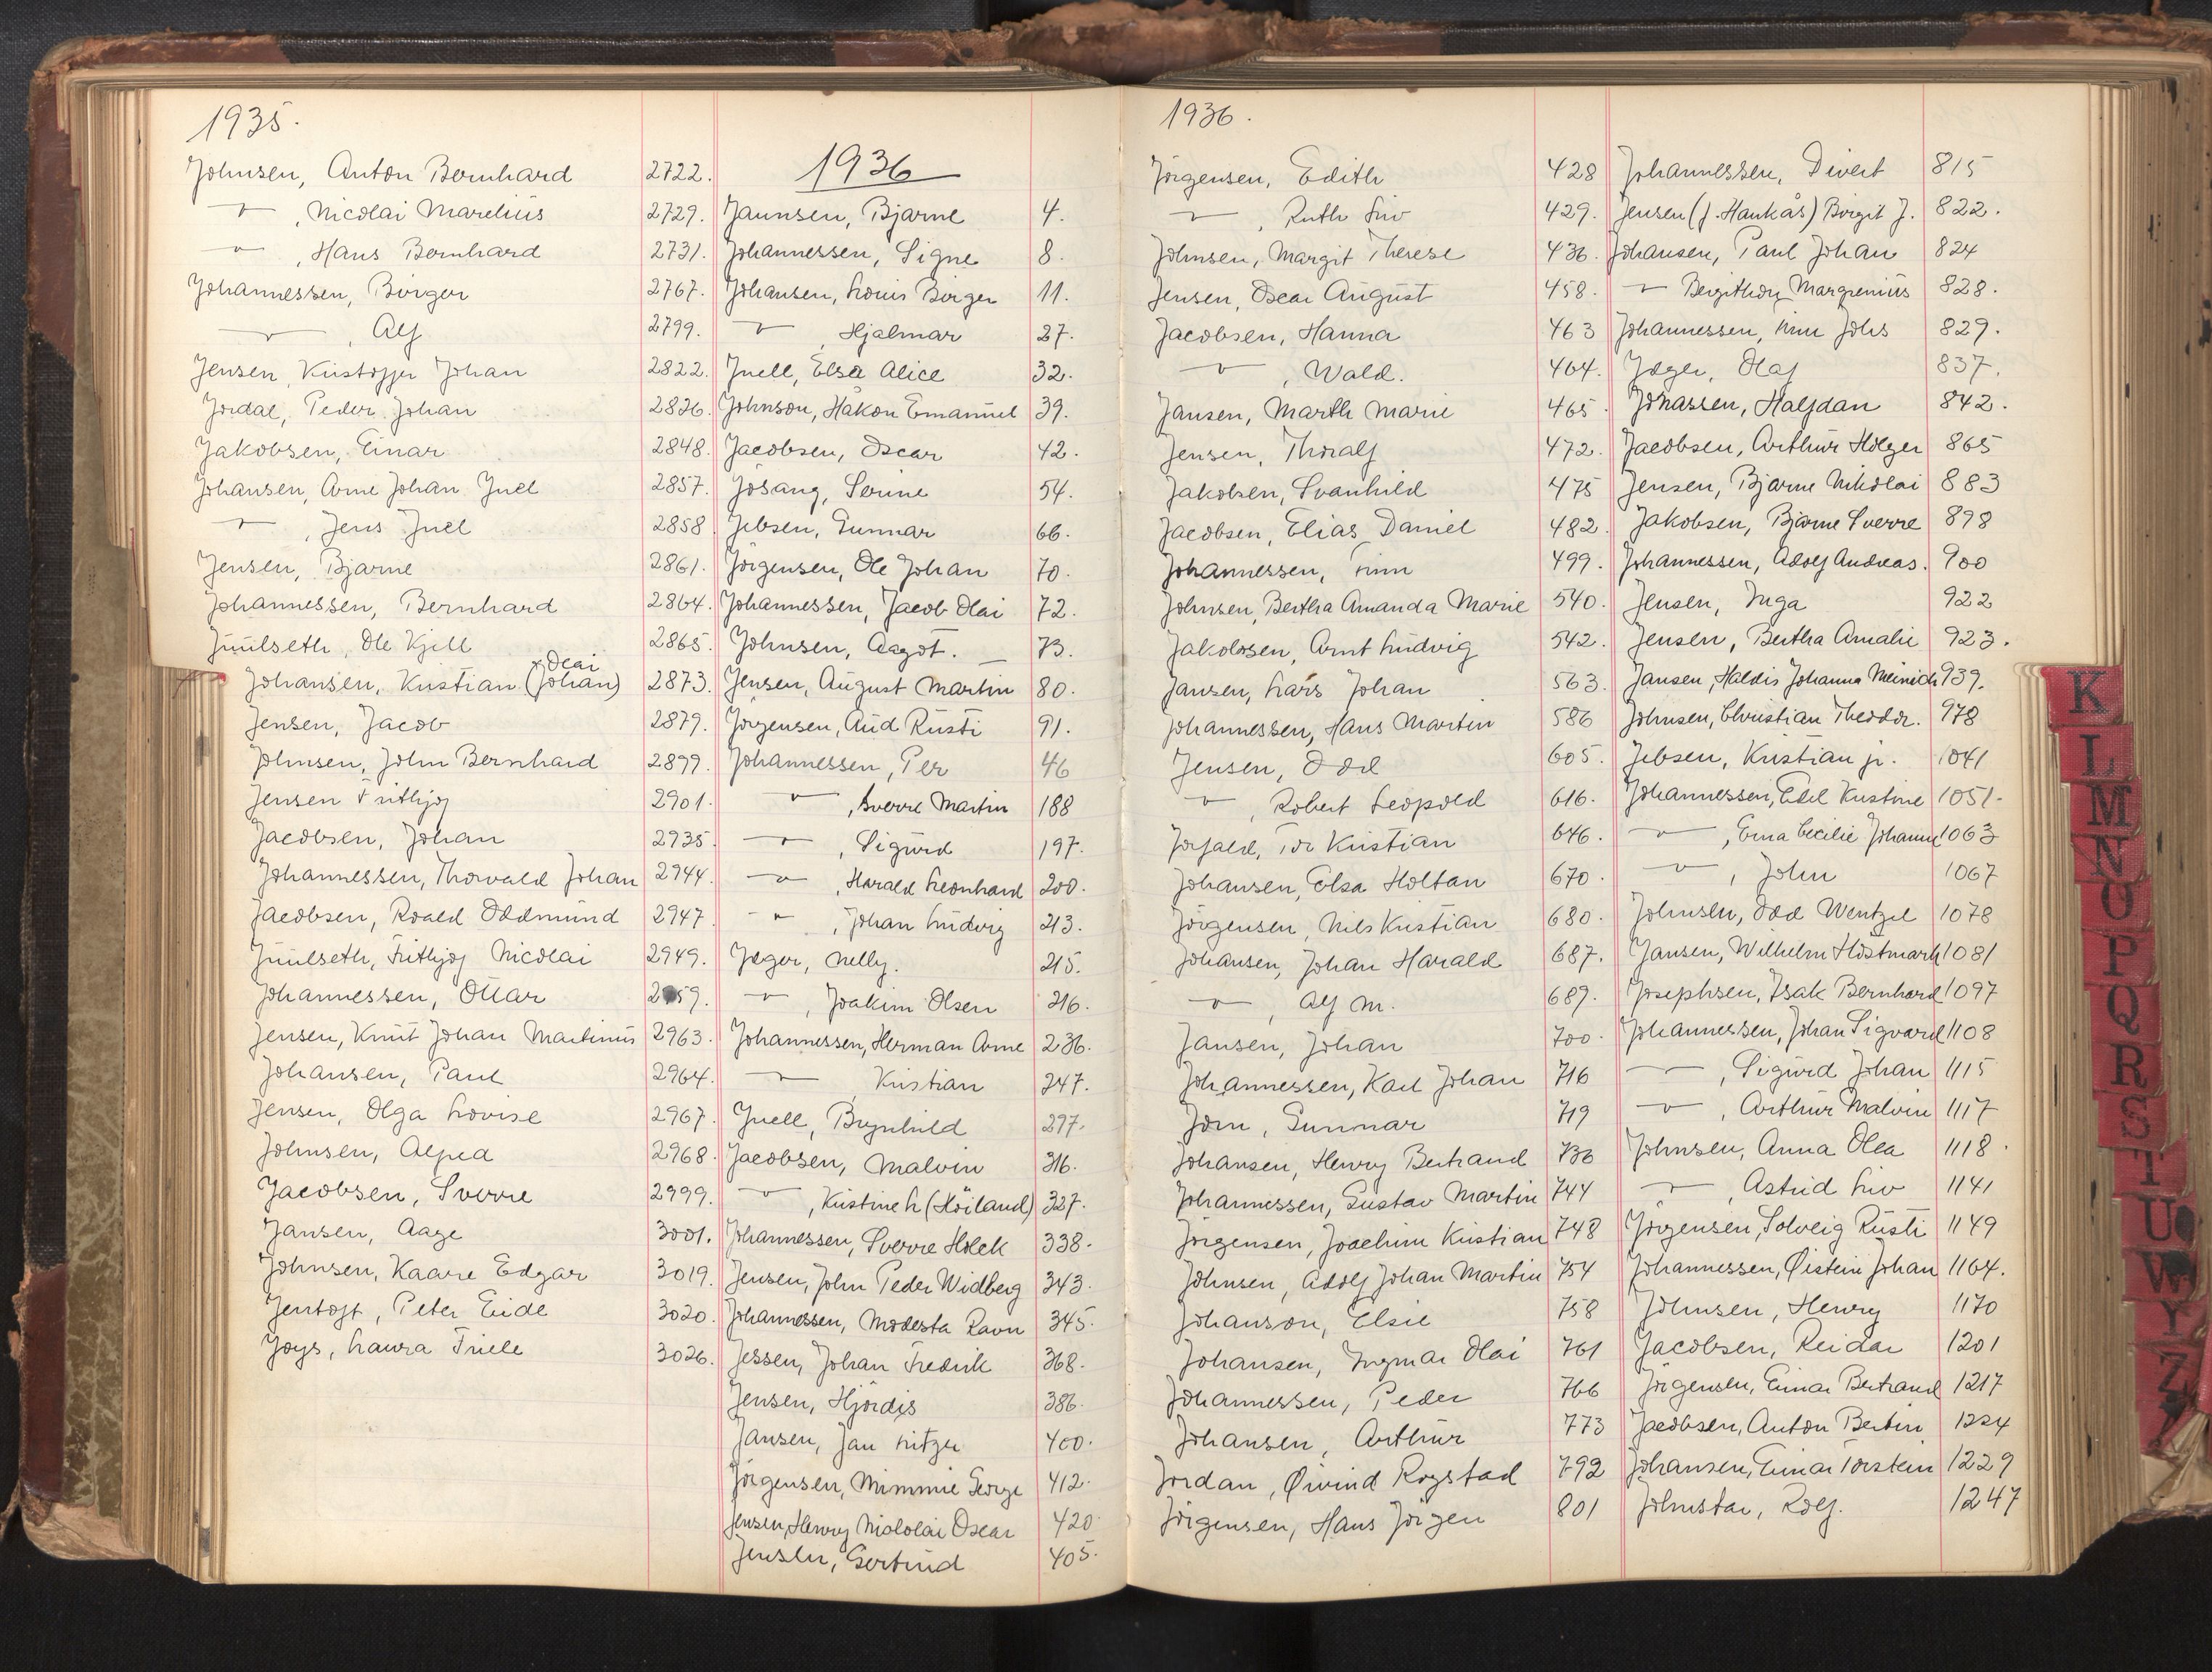 1935.
Johnsen, Anton Bernhard 2722.
〃 , Nicolai Marelius 2729.
〃 , Hans Bernhard 2731.
Johannessen, Birger 2767.
〃 , Alf 2799.
Jensen, Kristoffer Johan 2822.
Jordal, Peder Johan 2826.
Jakobsen, Einar 2848.
Johansen, Arne Johan Juel 2857.
〃 , Jens Juel 2858
Jensen, Bjarne 2861.
Johannessen, Bernhard 2864.
Juulseth, Ole Kjell 2865.
x Olai
Johansen, Kristian (Johan) 2873.
Jensen, Jacob 2879.
Johnsen, John Bernhard 2899.
Jensen Frithjof 2901.
Jacobsen, Johan 2935.
Johannessen, Thorvald Johan 2944.
Jacobsen, Roald Oddmund 2947
Juulseth, Frithjof Nicolai 2949.
Johannessen, Ottar 2959.
Jensen, Knut Johan Martinus 2963.
Johansen, Paul 2964.
Jensen, Olga Lovise 2967.
Johnsen, Alfred 2968.
Jacobsen, Sverre 2999.
Jansen, Aage 3001.
Johnsen, Kaare Edgar 3019.
Jentoft, Peter Eide 3020.
Joys, Laura Friele 3026.
1936
Jaunsen, Bjarne 4.
Johannessen, Signe 8.
Johansen, Louis Birger 11.
〃 , Hjalmar 27.
Juell, Elsa Alice 32.
Johnson, Håkon Emanuel 39.
Jacobsen, Oscar 42.
Jösang, Serine 54.
Jebsen, Gunnar 66.
Jörgensen, Ole Johan 70.
Johannessen, Jacob Olai 72.
Johnsen, Aagot. 73.
Jensen, August Martin 80.
Jörgensen, Aud Rusti 91.
Johannessen, Per 46
〃 , Sverre Martin 188
〃 , Sigurd 197.
〃 , Harald Leonhard 200.
〃 , Johan Ludvig 213.
Jæger, Nelly. 215.
〃 , Joakim Olsen 216.
Johannessen, Herman Arne 236.
〃 Kristian 247.
Juell, Brynhild 297.
Jacobsen, Malvin 316.
〃 , Kristine L (Höiland) 327.
Johannessen, Sverre Holck 338.
Jensen, John Peder Widberg 343.
Johannessen, Modesta Ravn 345.
Jessen, Johan Fredrik 368.
Jensen, Hjördis 386.
Jansen, Jan 400.
Jörgensen, Mimmie George 412.
Jensen, Henry Nicolai Oscar 420
Jensen, Gertrud 405.
1936.
Jörgensen, Edith 428
〃 , Ruth Liv 429.
Johnsen, Margit Therese 436.
Jensen, Oscar August 458.
Jacobsen, Hanna 463
〃 , Wald. 464.
Jansen, Marth Marie 465.
Jensen, Thoralf 472.
Jakobsen, Svanhild 475
Jacobsen, Elias Daniel 482.
Johannessen, Finn 499.
Johnsen, Bertha Amanda Marie 540.
Jakobsen, Arnt Ludvig 542.
Jansen, Lars Johan 563.
Johannessen, Hans Martin 586
Jensen, Odd 605.
〃 , Robert Leopold 616.
Jorfald, Tor Kristian 646.
Johansen, Elsa Holtan 670.
Jörgensen, Nils Kristian 680.
Johansen, Johan Harald 687.
〃 , Alf M. 689.
Jansen, Johan 700.
Johannessen, Karl Johan 716
Jörn, Gunnar 719
Johansen, Henry Bertrand 736
Johannessen, Gustav Martin 744
Jörgensen, Joachim Kristian 748
Johnsen, Adolf Johan Martin 754
Johanson, Elsie 758
Johansen, Ingmar Olai 761
Johannessen, Peder 766
Johansen, Arthur 773
Jordan, Øivind Rogstad 792
Jörgensen, Hans Jörgen 801
Johannessen, Divert 815
Jensen (f. Haukås) Birgit J. 822.
Johansen, Paul Johan 824
〃 Bergithon Margrenius 828.
Johannessen, Finn Johs 829.
Jæger, Olaf 837.
Johassen, Halfdan 842.
Jacobsen, Arthur Holger 865
Jensen, Bjarne Nikolai 883
Jakobsen, Bjarne Sverre 898
Johannessen, Adolf Andreas. 900
Jensen, Inga 922
Jensen, Bertha Amalie 923.
Jansen, Haldis Johanna Meinich 939.
Johnsen, Christian Theodor. 978
Jebsen, Kristian jr. 1041
Johannessen, Edel Kristine 1051.
〃 , Erna Cecilie Johanne 1063
〃 , John 1067
Johnsen, Odd Wentzel 1078
Jansen, Wilhelm Höstmark 1081
Josephsen, Isak Bernhard 1097
Johannessen, Johan Sigvard 1108
〃 , Sigurd Johan 1115
〃 , Arthur Malvin 1117
Johnsen, Anna Olea 1118.
〃 , Astrid Liv 1141
Jörgensen, Solveig Rusti 1149
Johannessen, Øistein Johan 1164.
Johnsen, Henry 1170
Jacobsen, Reidar 1201
Jörgensen, Einar Bertrand 1217
Jacobsen, Anton Bertin 1224
Johansen, Einar Torstein 1229
Johnstar, Rolf. 1247
K
L
M
N
O
P
Q
R
S
T
U
W
Y
Z